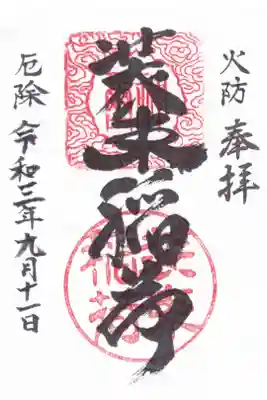 火防 奉拝
装束稲荷
厄除 令和三年九月十一日